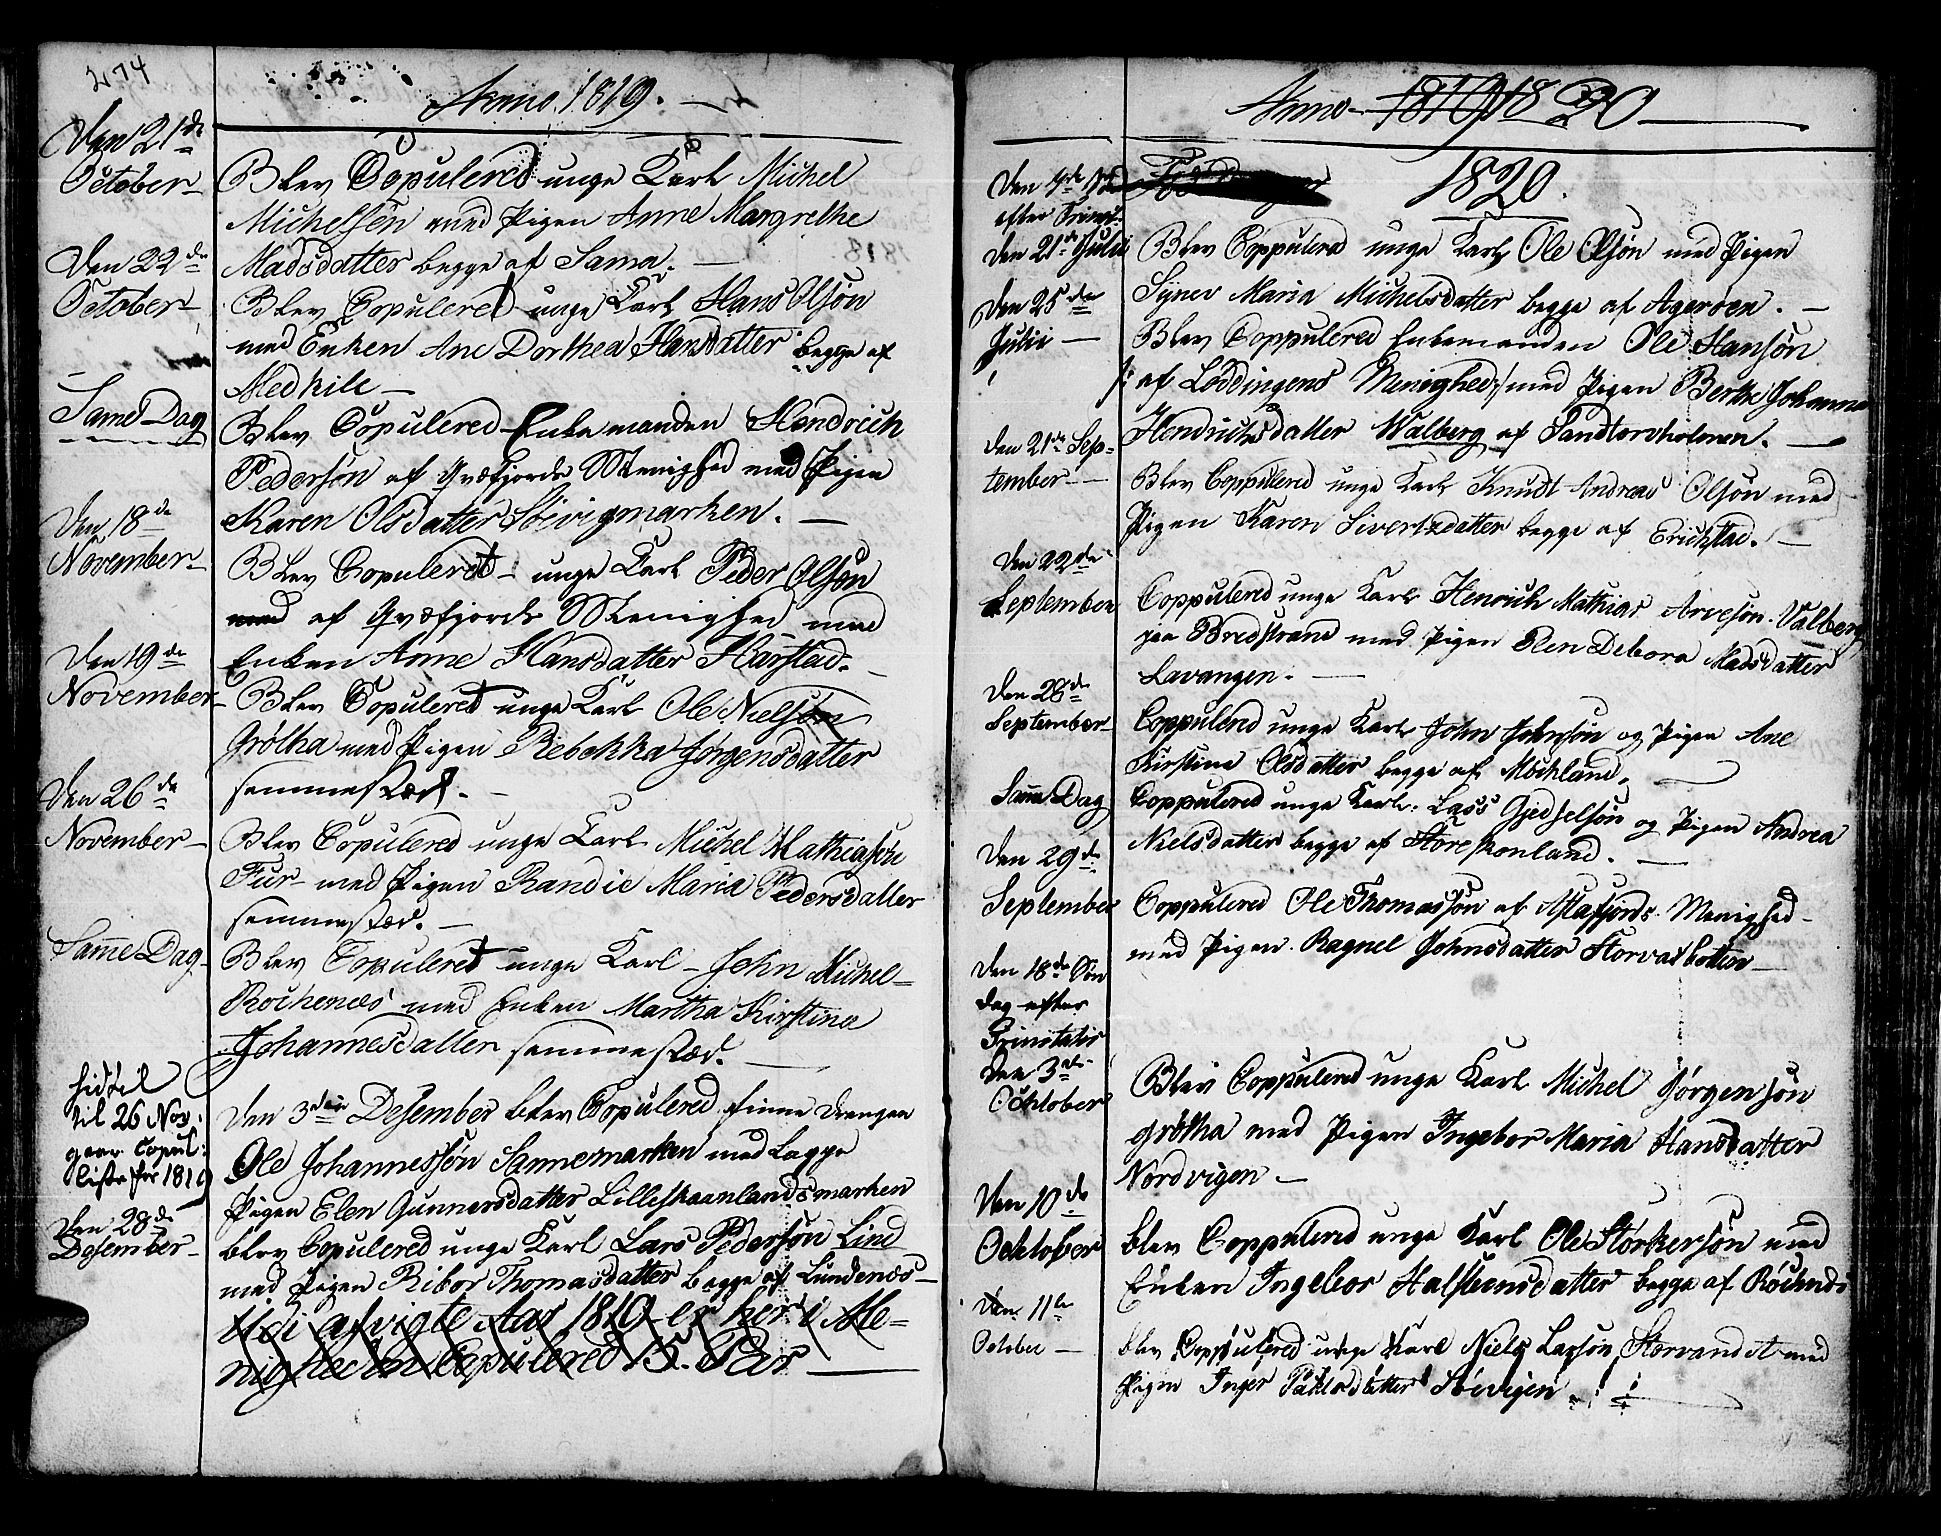 274
Anno 1819.
Den 21de
October
Blev Copulered unge Karl Michel
Michelsøn med Pigen Anne Margrethe
Madsdatter begge af Sama.
Den 22de
October
Blev Copulered unge Karl Hans Olsøn
med Enken Ane Dorthea Hansdatter begge af
Medkile
Samme Dag
Blev Copulered Enkemanden Hendrich
Pedersøn af Qvæfjords Menighed med Pigen
Karen Olsdatter Støvigmarken.
Den 18de
November
Blev Copuleret unge Karl Peder Olsøn
med af Qvæfjords Menighed med
Enken Anne Hansdatter Harstad.
Den 19de
November
Blev Copuleret unge Karl Ole Nielsøn
Grøtha med Pigen Rebekka Jørgensdatter
sammestæd.
Den 26de
November
Blev Copulered unge Karl Michel Mathiasøn
Fur med Pigen Randie Maria Pedersdatter
sammestæd.
Samme Dag
Blev Copuleret unge Karl John Michel
Rochenæs med Enken Martha Kirstina
Johannesdatter sammestæd.
hidtil
til 26 Nov.
gaar Copul:
liste for 1819
Den 3die Desember blev Copulered finne drengen
Ole Johannessøn Sannemarken med Lappe
Pigen Elen Gunnersdatter Lilleskaanlandsmarken
Den 28de
Desember
blev Copulered unge Karl Lars Pedersøn Lind
med Pigen Ribor Thomasdatter begge af Lundenæs
Udi afvigte Aar 1819 er her i Me-
nigheden Copulered 15. Par
Anno 1819 1820
1820.
Den 7de
efter Trinit.
Den 21de Julii
Blev Coppulered unge Karl Ole Olsøn med Pigen
Synev Maria Michelsdatter begge af Agerøen.
Den 25de
Julii
Blev Coppulered Enkemanden Ole Hansøn
/: af Løddingens Menighed :/ med Pigen Berthe Johanna
Hendrichsdatter Walberg af Sandtorvholmen.
Den 21de Sep-
tember
Blev Coppulered unge Karl Knudt Andreas Olsøn med
Pigen Karen Sivertsdatter begge af Erichstad.
Den 22de
September
Coppulered unge Karl Henrich Mathias Arvesøn Valberg
paa Bredstrand med Pigen Elen Debora Madsdatter
Lavangen.
Den 28de
September
Coppulered unge Karl John Johnsøn og Pigen Ane
Kirstina Olsdatter begge af Mochland.
Samme Dag
Coppulered unge Karl Lars Gjedselsøn og Pigen Andrea
Nielsdatter begge af Storeskonland.
Den 29de
September
Coppulered Ole Thomassøn af Astafjords Menighed
med Pigen Ragnel Johnsdatter Storvatbotten
Den 18de Søn
dag efter
Trinitatis
Den 3de
Ocktober
Blev Coppulered unge Karl Michel Jørgensøn
Grøtha med Pigen Ingebor Maria Hansdatter
Nordvigen
Den 10de
Ocktober
blev Coppulered unge Karl Ole Storkersøn med
Enken Ingebor Halsteensdatter begge af Røchenæs
Den 11te
October
blev Coppulered unge Karl Niels Larsøn Storvand med
Pigen Inger Pahlsdatter Støvigen